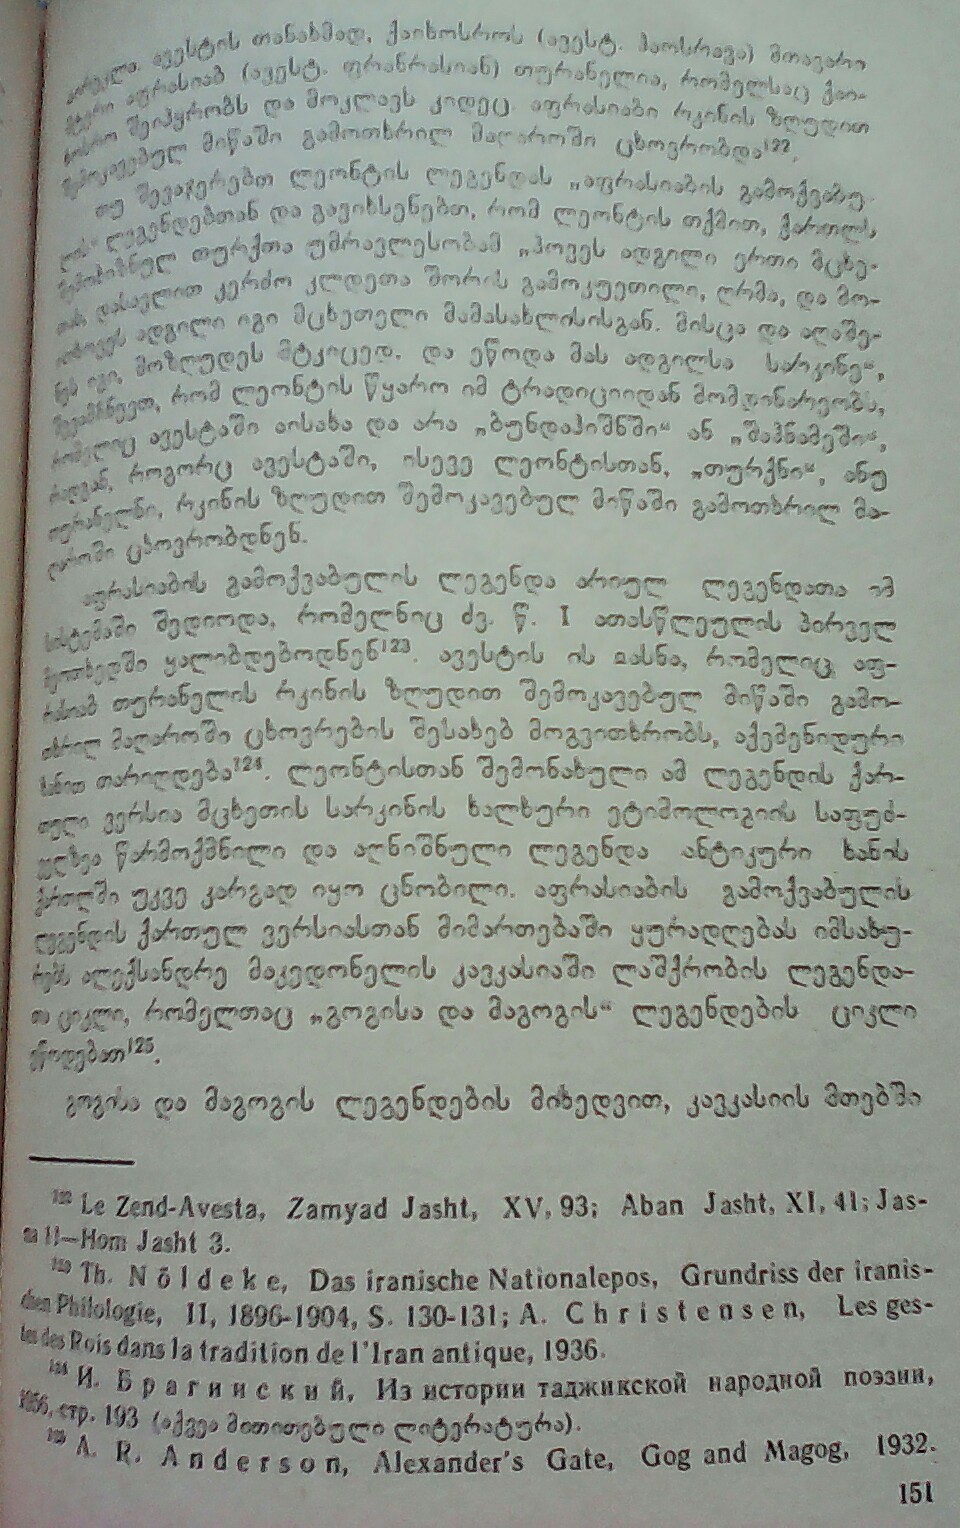 ავესტის თანახმად, ქაიხოსროს (ავესტ. ჰაოსრავა) მთავარი
მტერი აფრასიაბ (ავესტ. ფრანრასიან) თურანელია, რომელსაც ქაი-
ხოსრო შეიპყრობს და მოკლავს კიდეც. აფრასიაბი რკინის ზღუდით
შემოკავებულ მიწაში გამოთხრილ მაღაროში ცხოვრობდა¹²².
თუ შევაჯერებთ ლეონტის ლეგენდას „აფრასიაბის გამოქვაბუ-
ლის“ ლეგენდებთან და გავიხსენებთ, რომ ლეონტის თქმით, ქართლს
შემოხიზნულ თურქთა უმრავლესობამ „პოვეს ადგილი ერთი მცხე-
თას, დასავლით კერძო კლდეთა შორის გამოკუეთილი, ღრმა, და მო-
ითხოვეს ადგილი იგი მცხეთელი მამასახლისისგან. მისცა და აღაშე-
ნეს იგი, მოზღუდეს მტკიცედ. და ეწოდა მას ადგილსა სარკინე“,
შევამჩნევთ, რომ ლეონტის წყარო იმ ტრადიციიდან მომდინარეობს,
რომელიც ავესტაში აისახა და არა „ბუნდაჰიშნში“ ან „შაჰნამეში“,
რადგან, როგორც ავესტაში, ისევე ლეონტისთან, „თურქნი“, ანუ
თურანელნი, რკინის ზღუდით შემოკავებულ მიწაში გამოთხრილ მა-
ღაროში ცხოვრობდნენ.
აფრასიაბის გამოქვაბულის ლეგენდა არიულ ლეგენდათა იმ
სისტემაში შედიოდა, რომელნიც ძვ. წ. I ათასწლეულის პირველ
მეოთხედში ყალიბდებოდნენ¹²³. ავესტის ის იასნა, რომელიც აფ-
რასიაბ თურანელის რკინის ზღუდით შემოკავებულ მიწაში გამო-
თხრილ მაღაროში ცხოვრების შესახებ მოგვითხრობს, აქემენიდური
ხანით თარიღდება¹²⁴. ლეონტისთან შემონახული ამ ლეგენდის ქარ-
თული ვერსია მცხეთის სარკინის ხალხური ეტიმოლოგიის საფუძ-
ველზეა წარმოქმნილი და აღნიშნული ლეგენდა ანტიკური ხანის
ქართლში უკვე კარგად იყო ცნობილი. აფრასიაბის გამოქვაბულის
ლეგენდის ქართულ ვერსიასთან მიმართებაში ყურადღებას იმსახუ-
რებს ალექსანდრე მაკედონელის კავკასიაში ლაშქრობის ლეგენდა-
თა ციკლი, რომელთაც „გოგისა და მაგოგის“ ლეგენდების ციკლი
ეწოდებათ¹²⁵.
გოგისა და მაგოგის ლეგენდების მიხედვით, კავკასიის მთებში
¹²² Le Zend-Avesta, Zamyad Jasht, XV, 93; Aban Jasht, XI, 41; Jas-
na II—Hom Jasht 3.
¹²³ Th. Nöldeke, Das iranische Nationalepos, Grundriss der iranis-
chen Philologie, II, 1896-1904, S. 130-131; A. Christensen, Les ges-
tes des Rois dans la tradition de l'Iran antique, 1936.
¹²⁴ И. Брагинский, Из истории таджикской народной поэзии,
1956, стр. 193 (აქვეა მითითებული ლიტერატურა).
¹²⁵ A. R. Anderson, Alexander's Gate, Gog and Magog, 1932.
151